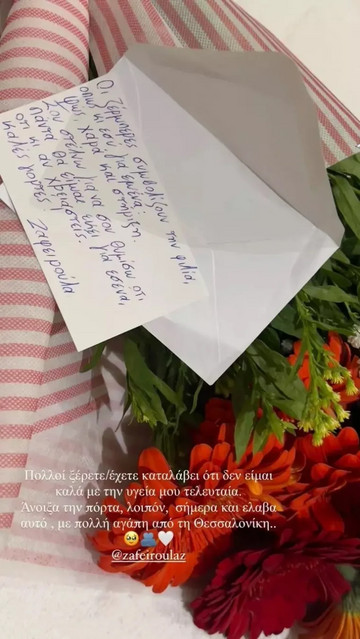 Οι ζέρμπερες συμβολίζουν την φιλία,
όπως κι εσύ για εμένα:
φως, χαρά και στήριξη.
Σου στέλνω για να σου θυμίσω ότι
πάντα θα είμαι εκεί για εσένα,
ότι κι αν χρειαστείς.
Καλές γιορτές Ζαφειρούλα
Πολλοί ξέρετε/έχετε καταλάβει ότι δεν είμαι
καλά με την υγεία μου τελευταία.
Άνοιξα την πόρτα, λοιπόν, σήμερα και ελαβα
αυτό , με πολλή αγάπη από τη Θεσσαλονίκη..
🥹🫂🤍
@zafeiroulaz